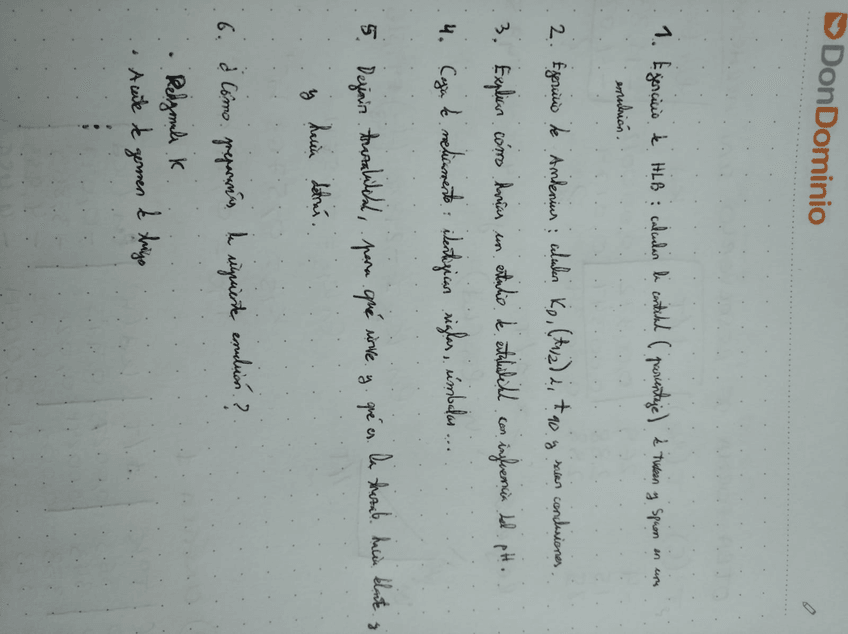 DonDominio
1. Ejercicio de HLB : calcular la cantidad (porcentaje) de tween y span en una
emulsión.
2. Ejercicio de Arrhenius : calcular KD, (t1/2) 2, t90 y sacar conclusiones.
3. Explicar cómo harías un estudio de estabilidad con influencia del pH.
4. Caja de medicamento : identificar siglas, símbolos...
5. Definir trazabilidad, para qué sirve y qué es la trazab. hacia delante y
y hacia detrás.
6. ¿Cómo prepararías la siguiente emulsión?
• K
• Aceite de germen de trigo